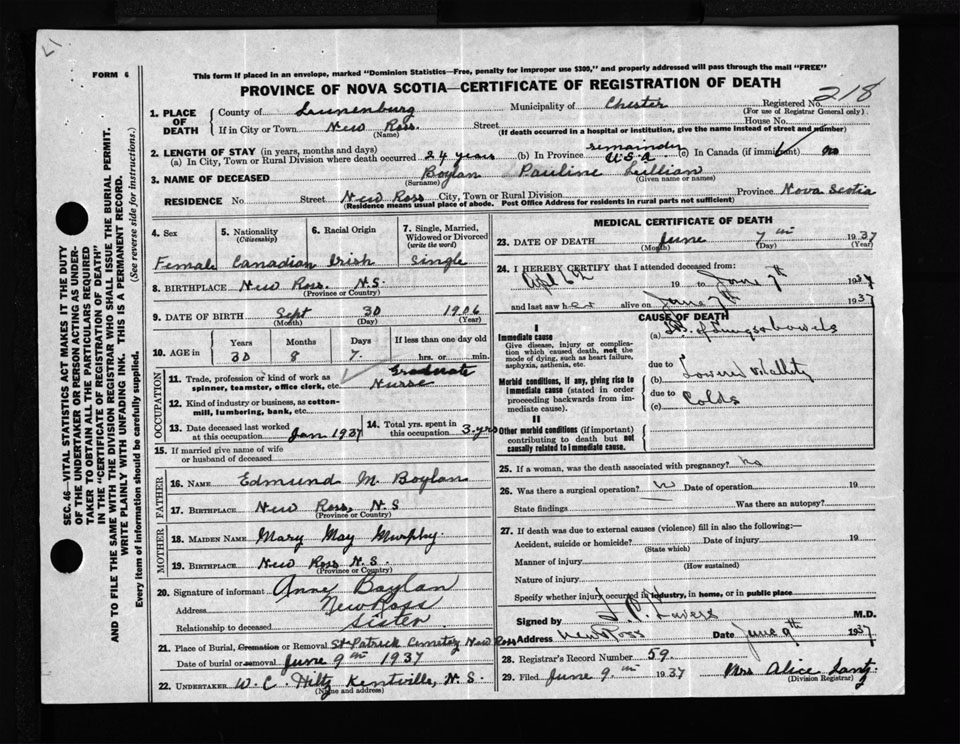 LI
FORM 6
This form if placed in an envelope, marked "Dominion Statistics—Free, penalty for improper use $300," and properly addressed will pass through the mail "FREE"
PROVINCE OF NOVA SCOTIA—CERTIFICATE OF REGISTRATION OF DEATH
218
1. PLACE OF DEATH County of Lunenburg Municipality of Chester Registered No.
(For use of Registrar General only)
If in City or Town New Ross Street House No.
(Name) (If death occurred in a hospital or institution, give the name instead of street and number)
2. LENGTH OF STAY (in years, months and days) remainder
(a) In City, Town or Rural Division where death occurred 24 years (b) In Province U.S.A. (c) In Canada (if immigrant) no
3. NAME OF DECEASED Boylan Pauline Lillian
(Surname) (Given name or names)
RESIDENCE No. Street New Ross City, Town or Rural Division Province Nova Scotia
(Residence means usual place of abode. Post Office Address for residents in rural parts not sufficient)
4. Sex 5. Nationality (Citizenship) 6. Racial Origin 7. Single, Married, Widowed or Divorced (write the word)
Female Canadian Irish Single
8. BIRTHPLACE New Ross N.S.
(Province or Country)
9. DATE OF BIRTH Sept 30 1906
(Month) (Day) (Year)
10. AGE in Years Months Days If less than one day old
30 8 7 hrs. or min.
OCCUPATION
11. Trade, profession or kind of work as spinner, teamster, office clerk, etc. Graduate Nurse
12. Kind of industry or business, as cotton-mill, lumbering, bank, etc.
13. Date deceased last worked at this occupation Jan 1937 14. Total yrs. spent in this occupation 3 yrs
15. If married give name of wife or husband of deceased
FATHER
16. NAME Edmund M. Boylan
17. BIRTHPLACE New Ross, N.S
(Province or Country)
MOTHER
18. MAIDEN NAME Mary May Murphy
19. BIRTHPLACE New Ross N.S.
(Province or Country)
20. Signature of informant Anne Boylan
Address New Ross
Relationship to deceased Sister
21. Place of Burial, Cremation or Removal St Patrick Cemetery New Ross
Date of burial or removal June 9th 1937
22. UNDERTAKER W. C. Hiltz Kentville, N.S.
(Name and address)
MEDICAL CERTIFICATE OF DEATH
23. DATE OF DEATH June 7th 1937
(Month) (Day) (Year)
24. I HEREBY CERTIFY that I attended deceased from:
19 to June 7th 1937
and last saw her alive on June 7th 1937
CAUSE OF DEATH
I
Immediate cause
Give disease, injury or complication which caused death, not the mode of dying, such as heart failure, asphyxia, asthenia, etc.
(a) T.B. of Lungs & bowels
due to
Morbid conditions, if any, giving rise to immediate cause (stated in order proceeding backwards from immediate cause).
(b) Lowered vitality
due to
(c) Colds
II
Other morbid conditions (if important) contributing to death but not causally related to immediate cause.
25. If a woman, was the death associated with pregnancy? No
26. Was there a surgical operation? Date of operation 19
State findings Was there an autopsy?
27. If death was due to external causes (violence) fill in also the following:—
Accident, suicide or homicide? Date of injury 19
(State which)
Manner of injury
(How sustained)
Nature of injury
Specify whether injury occurred in industry, in home, or in public place
Signed by M.D.
Address New Ross Date June 9th 1937
28. Registrar's Record Number 59.
29. Filed June 9th 1937 Mrs Alice Lantz
(Division Registrar)
SEC. 46—VITAL STATISTICS ACT MAKES IT THE DUTY
OF THE UNDERTAKER OR PERSON ACTING AS UNDER-
TAKER TO OBTAIN ALL THE PARTICULARS REQUIRED
IN THE "CERTIFICATE OF REGISTRATION OF DEATH"
AND TO FILE THE SAME WITH THE DIVISION REGISTRAR WHO SHALL ISSUE THE BURIAL PERMIT.
WRITE PLAINLY WITH UNFADING INK. THIS IS A PERMANENT RECORD.
Every item of information should be carefully supplied. (See reverse side for instructions.)